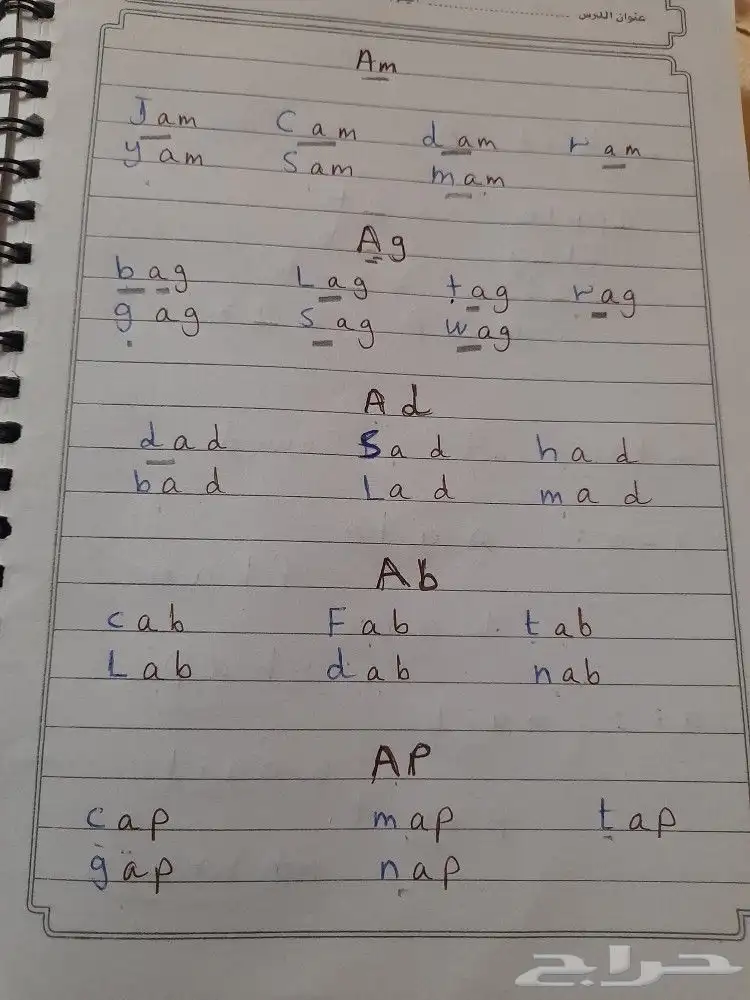 عنوان الدرس
Am
Jam Cam dam ram
yam Sam mam
Ag
bag Lag tag rag
gag Sag wag
Ad
dad Sad had
bad Lad mad
Ab
cab Fab tab
Lab dab nab
AP
cap map tap
gap nap
حراج